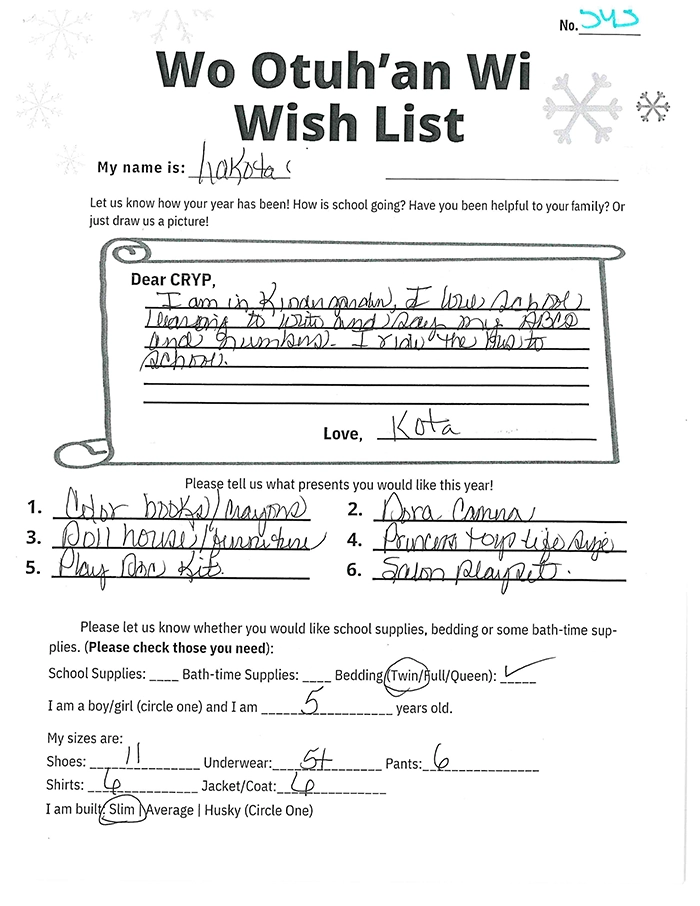 No. 343
Wo Otuh'an Wi
Wish List
My name is: Lakota
Let us know how your year has been! How is school going? Have you been helpful to your family? Or
just draw us a picture!
Dear CRYP,
I am in Kindergarden, I love school
learning to write and say my ABCs
and numbers. I ride the bus to
school.
Love, Kota
Please tell us what presents you would like this year!
1. Color books/crayons 2. Dora Camera
3. Doll house/furniture 4. Princess toys life size
5. Play Doc Kit. 6. Salon playset.
Please let us know whether you would like school supplies, bedding or some bath-time sup-
plies. (Please check those you need):
School Supplies: ____ Bath-time Supplies: ____ Bedding (Twin/Full/Queen): ✓
I am a boy/girl (circle one) and I am 5 years old.
My sizes are:
Shoes: 11 Underwear: 5t Pants: 6
Shirts: 6 Jacket/Coat: 6
I am built: Slim | Average | Husky (Circle One)